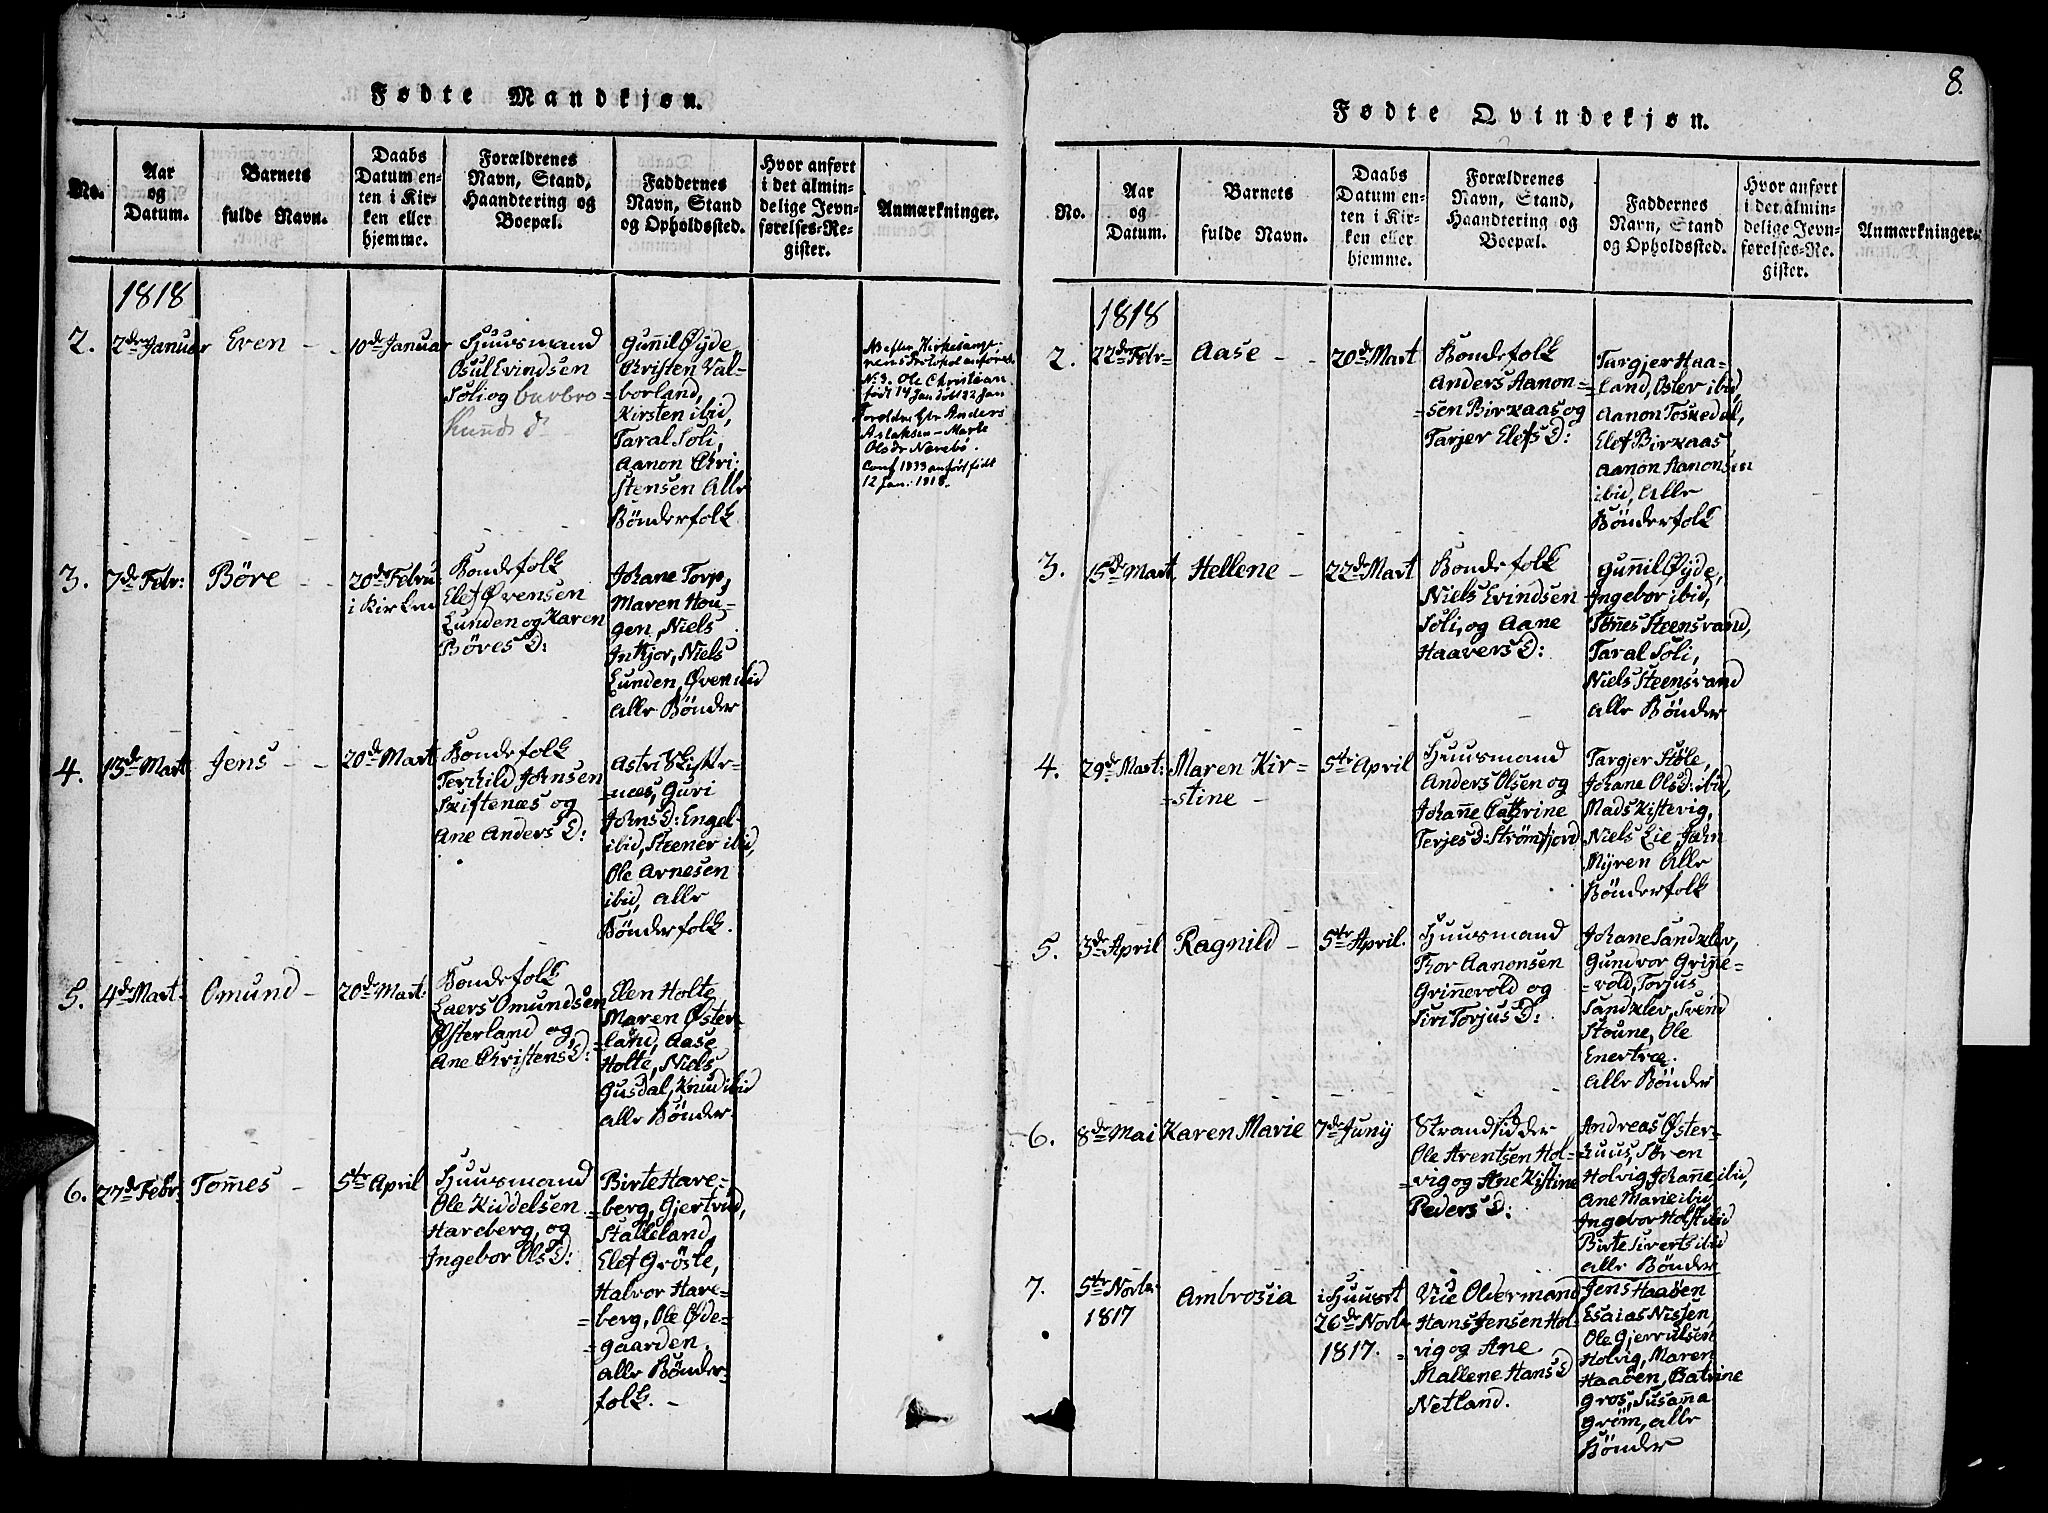 8.
Fødte Mandkjøn.
No.
Aar
og
Datum.
Barnets
fulde Navn.
Daabs
Datum en-
ten i Kir-
ken eller
hjemme.
Forældrenes
Navn, Stand,
Haandtering og
Boepæl.
Faddernes
Navn, Stand
og Opholdssted.
Hvor anført
i det almin-
delige Jevn-
førelses-Re-
gister.
Anmærkninger.
1818
2.
2de Januar
Even -
10de Januar
Huusmand
Osul Evindsen
Soli og barbro
Kunds D
Gunnil Øyde,
Christen Val-
borland,
Kirsten ibid,
Taral Soli,
Aanon Chri-
stensen Alle
Bönderfolk
No. 3. Ole Christian
født 14 Jan døbt 22 Jan
Anders
Aslaksen - Marte
Olsdr Nærebö.
Conf 1833 anført født
12 Jan. 1818.
3.
7de Febr:
Böre - -
20de Febru:
i Kirken
Bondefolk
Elef Øvensen
Lunden og Karen
Böres D:
Johane Torp,
Maren Hou-
gen, Niels
Inkjor, Niels
Lunden, Øven ibid
alle Bönder
4.
13de Mart
Jens - -
20de Mart
Bondefolk
Terkild Johnsen
Skiftenæs og
Ane Anders D:
Astri Skifte-
næs, Guri
Johns D: Engel-
ibid, Steener ibid,
Ole Arnesen
ibid, alle
Bönderfolk.
5.
4de Mart
Omund -
20de Mart:
Bondefolk
Laers Omundsen
Østerland og
Ane Christens D:
Elen Holte
Maren Øster-
land, Aase
Holte, Niels
Gusdal, Knud ibid
alle Bönder.
6.
27de Febr:
Tomes -
5te April
Huusmand
Ole Kiddelsen
Hareberg, og
Ingebor Ols D:
Birte Hare-
berg, Gjertrud,
Stalleland,
Elef Gröste,
Halvor Hare-
berg, Ole Øde-
gaarden.
alle Bönder-
folk. -
Fødte Qvindekjøn.
No.
Aar
og
Datum.
Barnets
fulde Navn.
Daabs
Datum en-
ten i Kir-
ken eller
hjemme.
Forældrenes
Navn, Stand,
Haandtering og
Boepæl.
Faddernes
Navn, Stand
og Opholdssted.
Hvor anført
i det almin-
delige Jevn-
førelses-Re-
gister.
Anmærkninger.
1818
2.
22de Febr-
Aase - -
20de Mart
Bondefolk
Anders Aanon-
sen Birkaas og
Tarjer Elefs D:
Targjer Haa-
land, Oster ibid,
Aanon Toskedal,
Elef Birkaas
Aanon Aanonsen
ibid, Alle
Bönderfolk
3.
15de Mart
Hellene -
22de Mart
Bondefolk
Niels Evindsen
Soli, og Aane
Haavers D:
Gunnil Øyde,
Ingebor ibid,
Tönnes Steensvand,
Taral Soli,
Niels Steensvand
alle Bönder
4.
29de Mart:
Maren Kir-
stine -
5te April
Huusmand
Anders Olsen og
Johanne Cathrine
Terjes D: Strömfjord
Targjer Stöle,
Johane Ols D: ibid,
Mads Kistevig,
Niels Lie, John
Myren Alle
Bönderfolk
5.
3de April
Ragnild -
5te April.
Huusmand
Thor Aanonsen
Grinnevold og
Siri Torjus D:
Johane Sandklev,
Gundvor Grine-
vold, Torjus
Sandklev, Svend
Stoune, Ole
Enertræ.
alle Bönder
6.
8de Mai
Karen Marie
7de Juny
Strandsidder
Ole Arentsen Hol-
vig og Ane Kistine
Peders D:
Andreas Øster-
huus, Søren
Holvig, Johanne ibid,
Ane Marie ibid
Ingebor Holst ibid
Birte Siverts ibid
alle Bönder
7.
5te Novbr
1817
Ambrosia
i Huuset
26de Novbr
1817.
Vice Oldermand
Hans Jensen Hol-
vig og Ane
Mallene Hans D
Netland.
Jens Haaöen
Esaias Nissen,
Ole Gjerrulsen
Holvig, Maren
Haaöen, Catrine
Gros, Susanna
Gröm, alle
Bönder